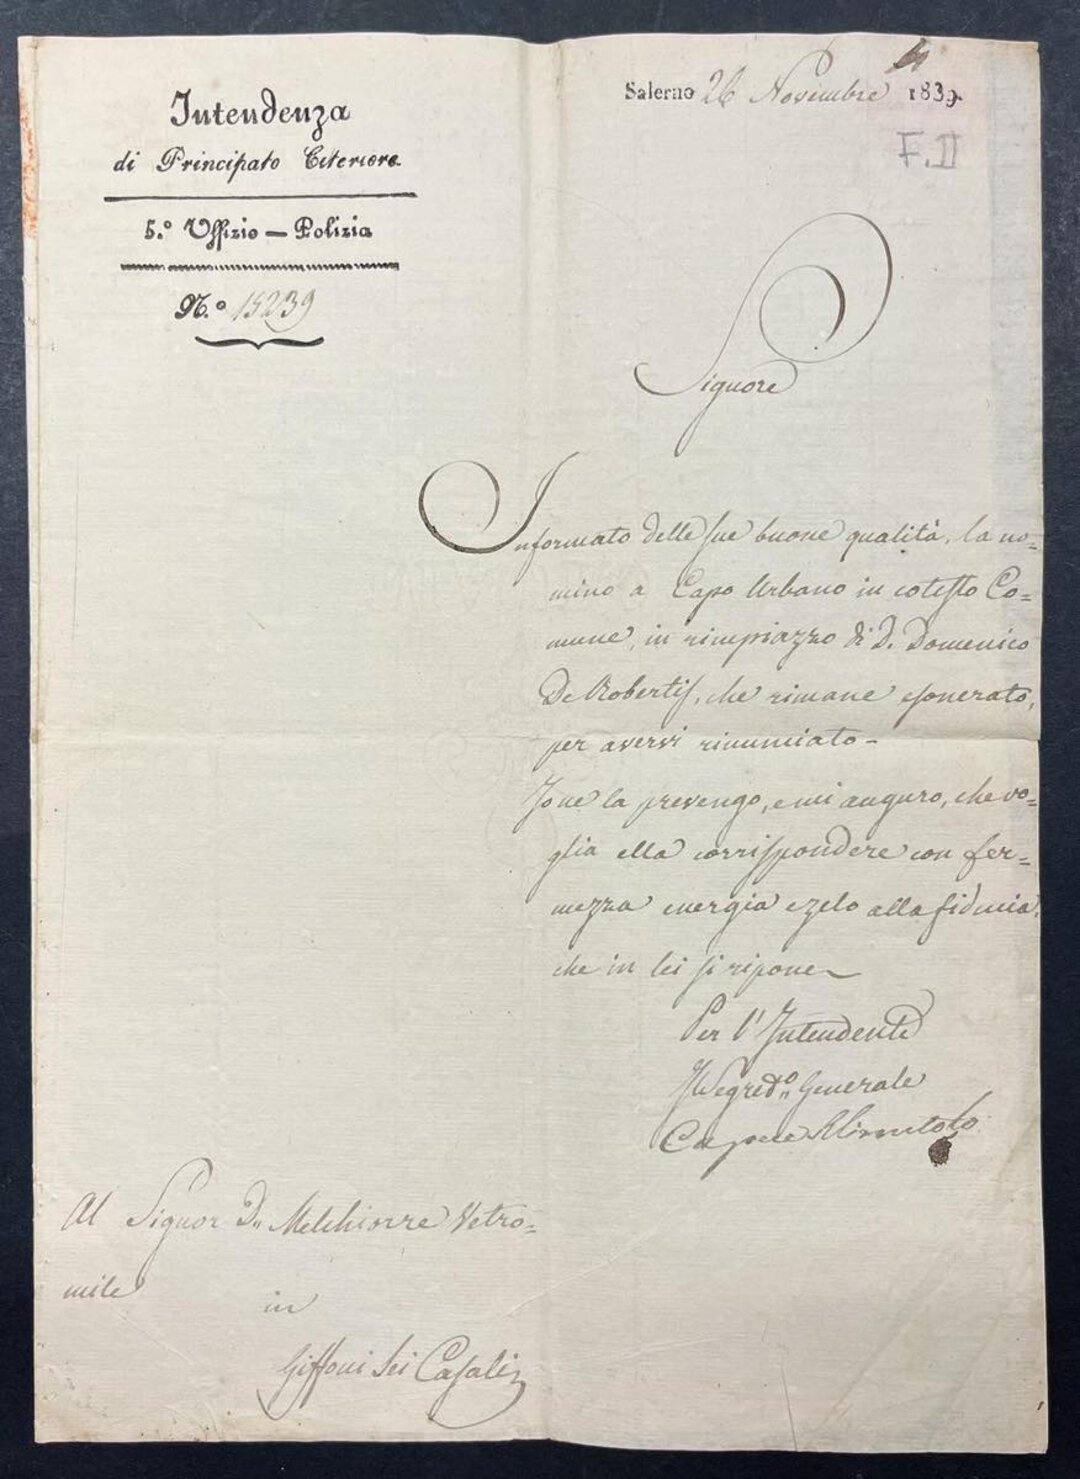 Intendenza
di Principato Citeriore
5.° Uffizio — Polizia
N.° 15239
Salerno 26 Novembre 1839
F. II
Signore
Informato delle sue buone qualità, la no=
mino a Capo Urbano in cotesto Co=
mune, in rimpiazzo di D. Domenico
De Robertis, che rimane esonerato,
per avervi rinunciato -
Io ne la prevengo, e mi auguro, che vo=
glia ella corrispondere con fer=
mezza energia e zelo alla fiducia,
che in lei si ripone
Per l'Intendente
Il Segred.° Generale
Capece
Al Signor D.n Melchiorre Vetro=
mile
in
Giffoni Sei Casali